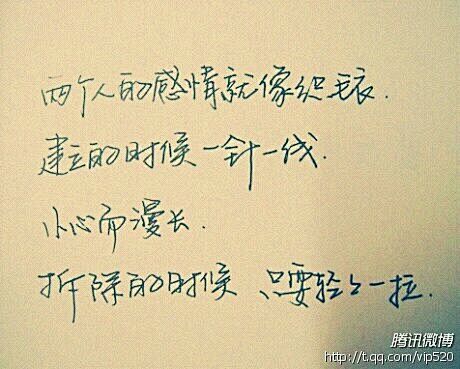 两个人的感情就像织毛衣.
建立的时候一针一线.
小心而漫长.
拆除的时候 只要轻轻一拉.
腾讯微博
http://t.qq.com/vip520